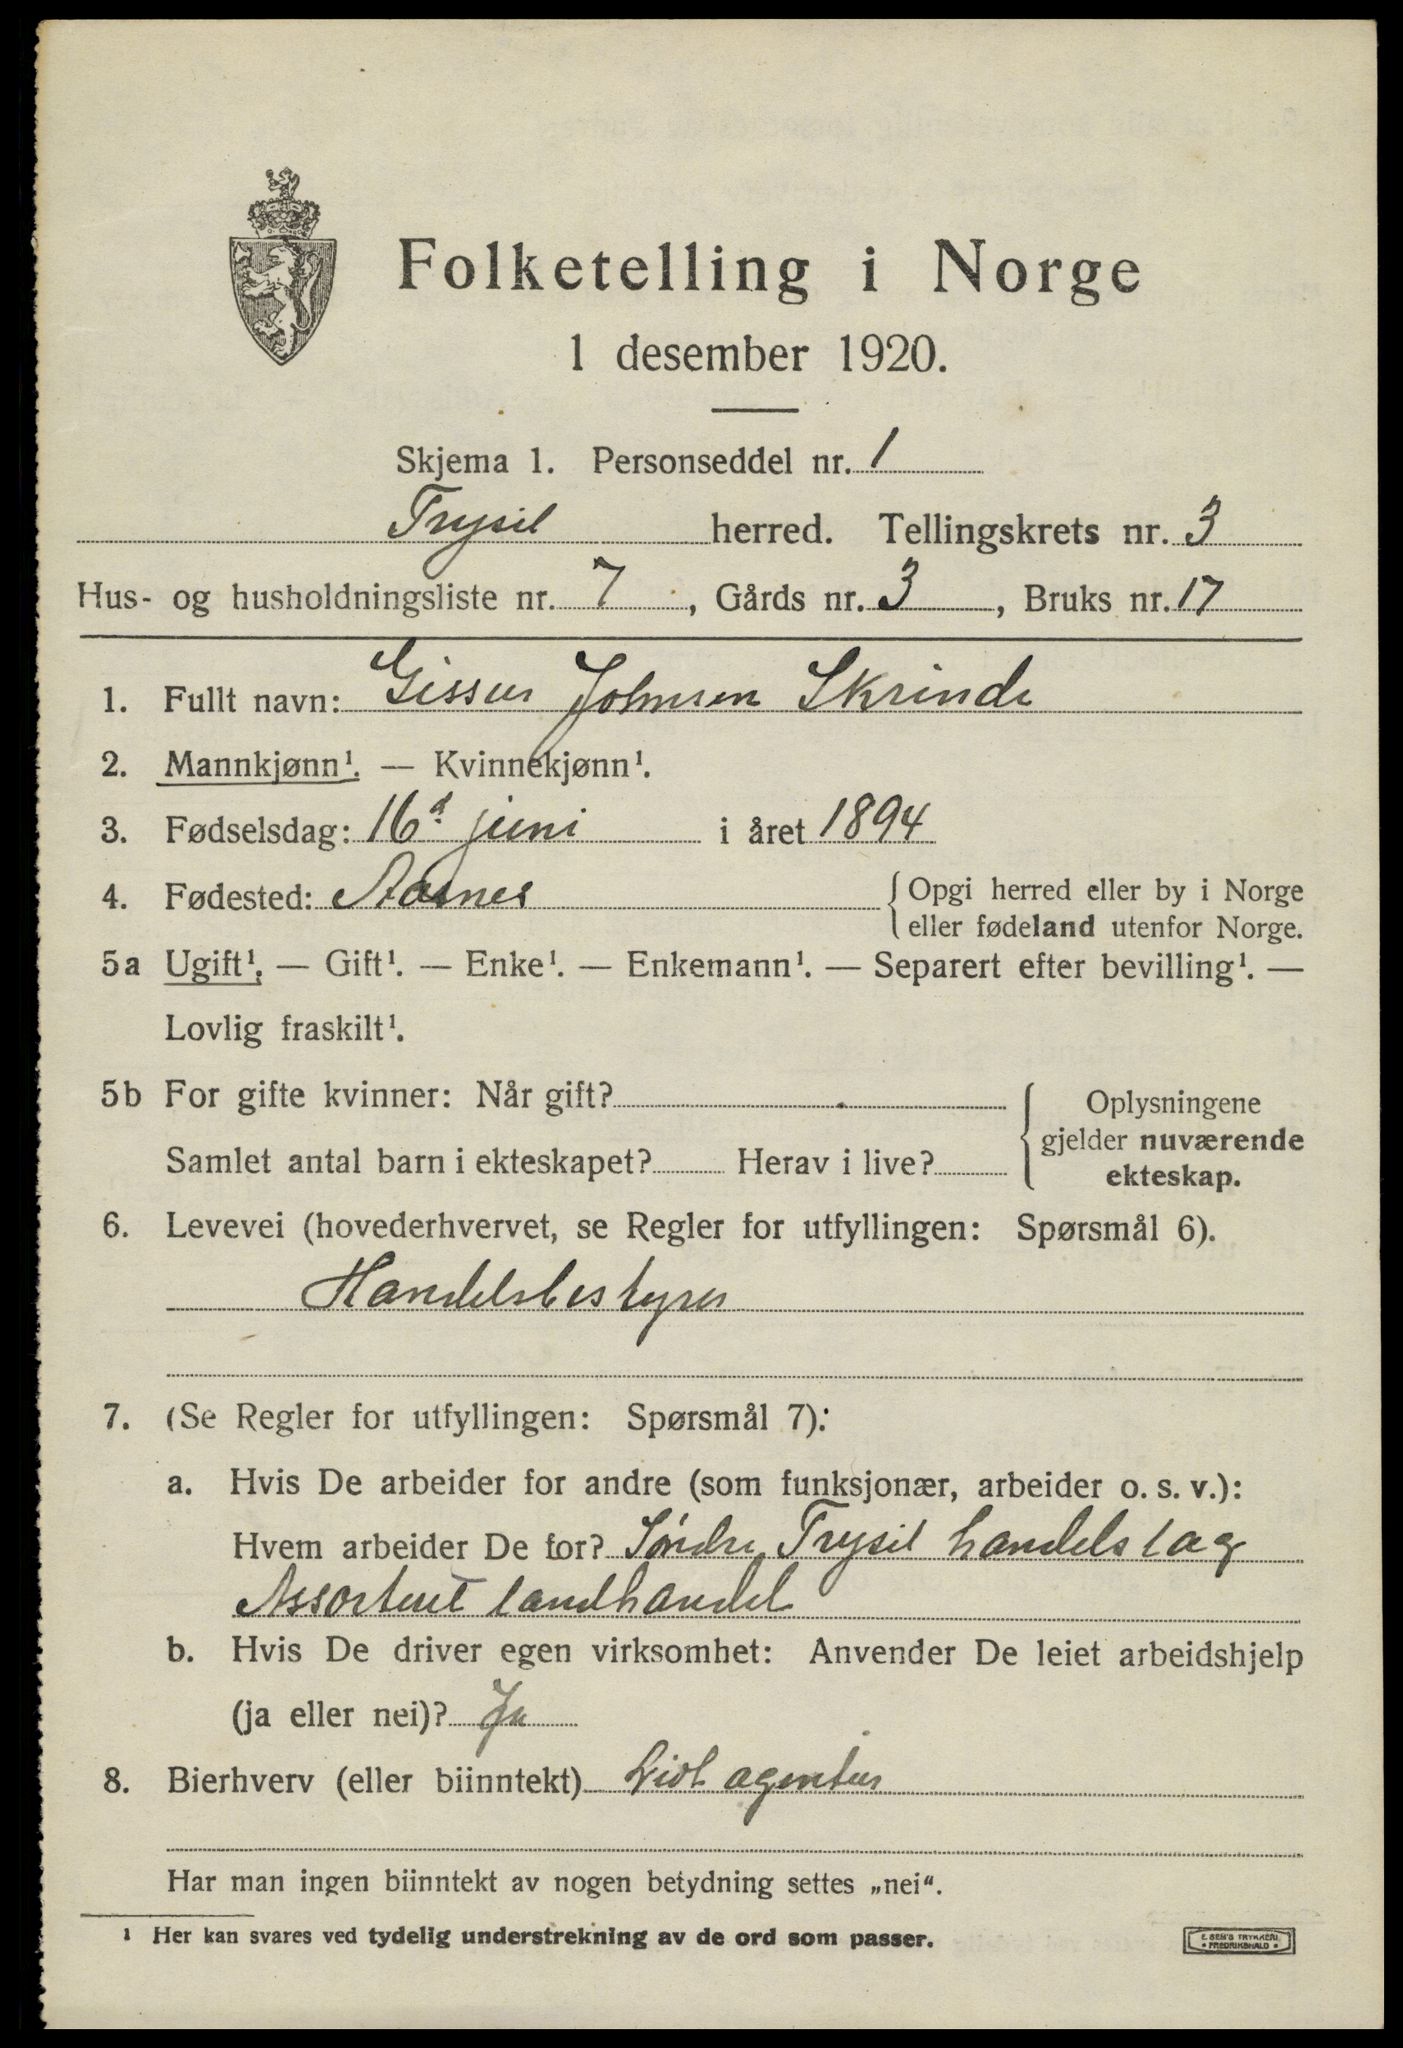 Folketelling i Norge
1 desember 1920.
Skjema 1. Personseddel nr. 1
Trysil herred. Tellingskrets nr. 3
Hus- og husholdningsliste nr. 7, Gårds nr. 3, Bruks nr. 17
1. Fullt navn: Gissur Johnsen Skrinde
2. Mannkjønn¹. — Kvinnekjønn¹.
3. Fødselsdag: 16d juni i året 1894
4. Fødested: Aasnes { Opgi herred eller by i Norge
eller fødeland utenfor Norge.
5a Ugift¹. — Gift¹. — Enke¹. — Enkemann¹. — Separert efter bevilling¹. —
Lovlig fraskilt¹.
5b For gifte kvinner: Når gift? { Oplysningene
gjelder nuværende
Samlet antal barn i ekteskapet? Herav i live? ekteskap.
6. Levevei (hovederhvervet, se Regler for utfyllingen: Spørsmål 6).
Handelsbestyrer
7. (Se Regler for utfyllingen: Spørsmål 7):
a. Hvis De arbeider for andre (som funksjonær, arbeider o. s. v.):
Hvem arbeider De for? Søndre Trysil handelslag
Assortert landhandel
b. Hvis De driver egen virksomhet: Anvender De leiet arbeidshjelp
(ja eller nei)? Ja
8. Bierhverv (eller biinntekt) agentur
Har man ingen biinntekt av nogen betydning settes „nei“.
¹ Her kan svares ved tydelig understrekning av de ord som passer.
E. SEM'S TRYKKERI
• FREDRIKSHALD •